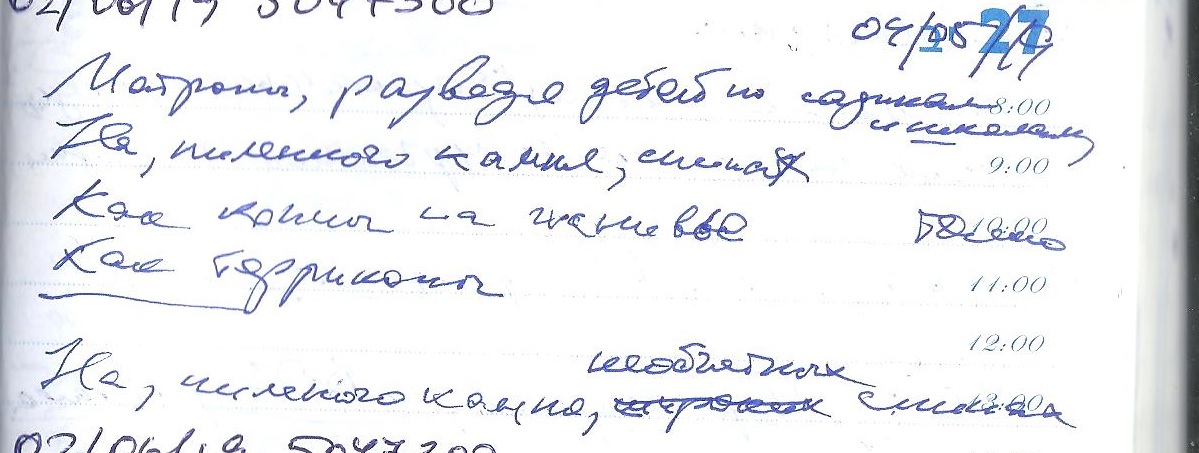 02/06/19 5047300
04/05/19 27
Матроны, разведя детей по садикам 8:00
и школам,
На, пиленного камня, спинах 9:00
Как копны на жнивье 10:00
Как терриконы 11:00
12:00
необъятных
На, пиленого камня, широких спинах 13:00
02/06/19 5047300